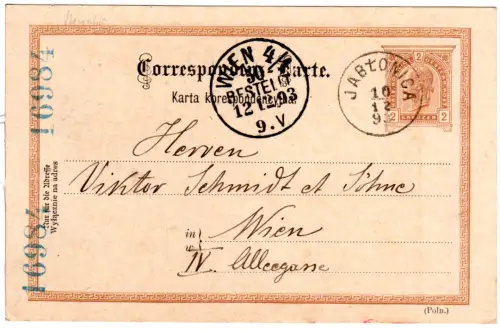 Correspondenz-Karte.
Karta korespondencyjna.
WIEN 4/1
BESTELLT
12 12 93
9.V
JABŁONICA
10
12
93
2
2
16984
16984
Nur für die Adresse
Wyłącznie na adres
Herren
Viktor Schmidt et Söhne
in
w
Wien
IV. Alleegasse
(Poln.)